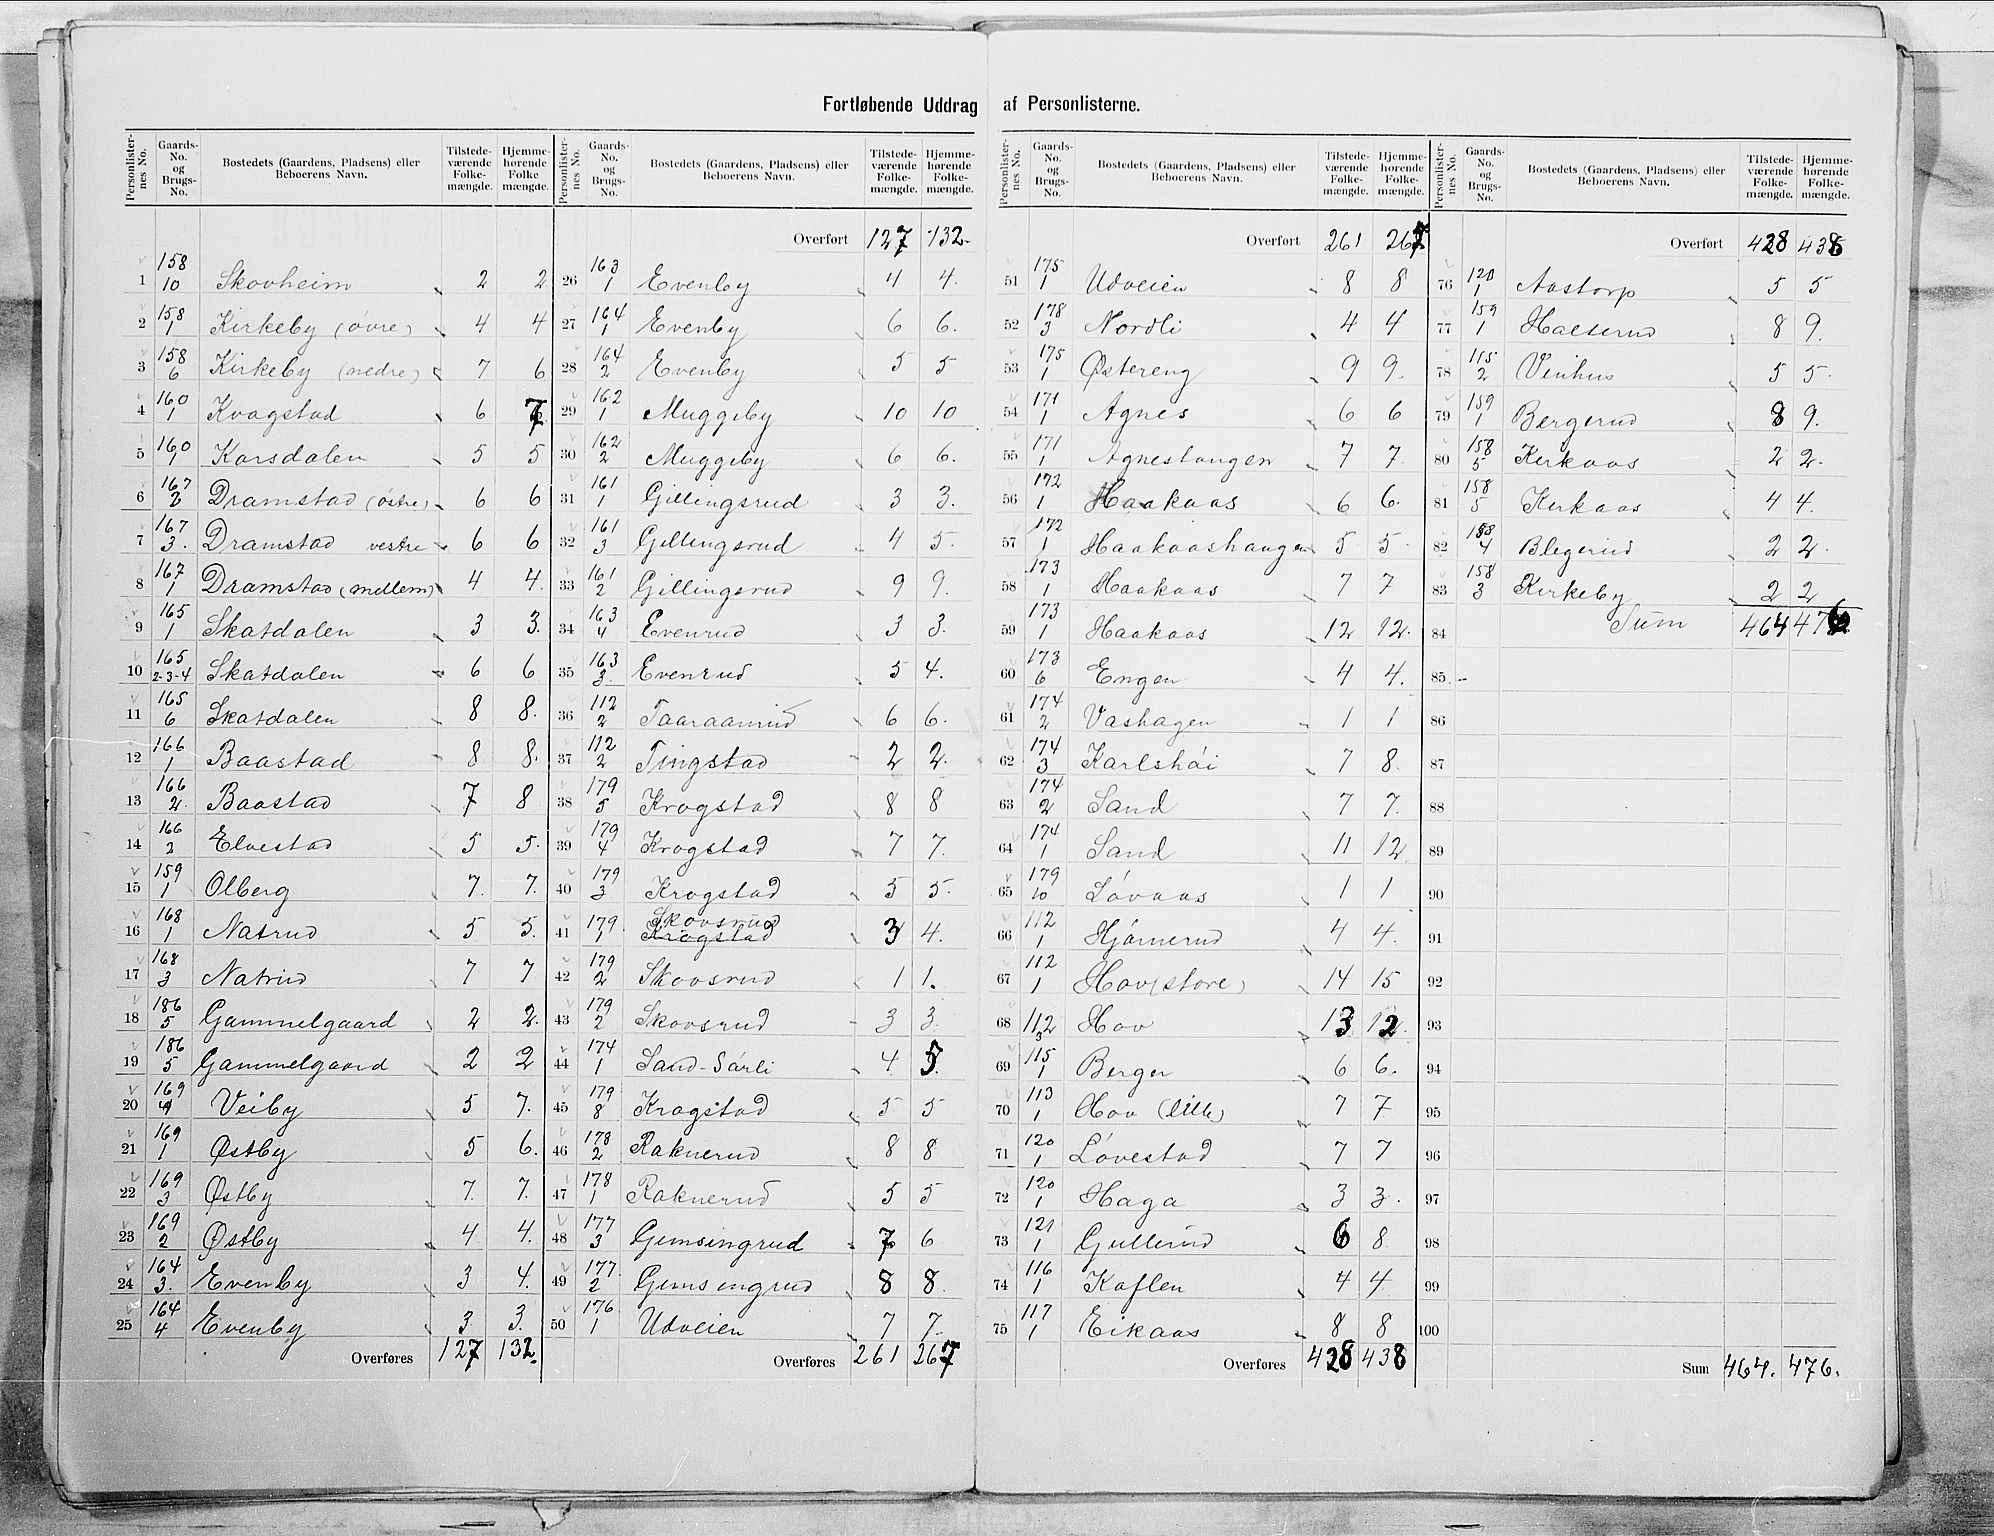 Fortløbende Uddrag af Personlisterne.
Personlisternes No. | Gaards-No. og Brugs-No. | Bostedets (Gaardens, Pladsens) eller Beboerens Navn. | Tilstedeværende Folkemængde. | Hjemmehørende Folkemængde.
1 158/10 Skovheim 2 2
2 158/1 Kirkeby (øvre) 4 4
3 158/6 Kirkeby (nedre) 7 6
4 160/1 Kragstad 6 7
5 160/1 Korsdalen 5 5
6 167/2 Dramstad (østre) 6 6
7 167/3. Dramstad vestre 6 6
8 167/1 Dramstad (mellem) 4 4.
9 165/1 Skatdalen 3 3.
10 165/2-3-4 Skatdalen 6 6
11 165/6 Skatdalen 8 8.
12 166/1 Baastad 8 8.
13 166/2. Baastad 7 8
14 166/2 Elvestad 5 5.
15 159/1 Olberg 7. 7.
16 168/1 Natrud 5 5.
17 168/3 Natrud 7 7
18 186/5 Gammelgaard 2 2.
19 186/5 Gammelgaard 2 2
20 169/4 Veiby 5 7.
21 169/1 Østby 5 6.
22 169/3 Østby 7. 7.
23 169/2 Østby 4 4.
24 164/3. Evenby 3 4.
25 164/4 Evenby 3 3.
Overføres 127 132.
Personlisternes No. | Gaards-No. og Brugs-No. | Bostedets (Gaardens, Pladsens) eller Beboerens Navn. | Tilstedeværende Folkemængde. | Hjemmehørende Folkemængde.
Overført 127 132.
26 163/1 Evenby 4 4.
27 164/1 Evenby 6 6.
28 164/2 Evenby 5 5
29 162/1 Muggeby 10 10
30 162/2 Muggeby 6 6.
31 161/1 Gillingsrud 3 3.
32 161/3 Gillingsrud 4 5.
33 161/2 Gillingsrud 9 9.
34 163/4 Evenrud 3 3.
35 163/3. Evenrud 5 4.
36 112/2 Taaraamrud 6 6.
37 112/2 Tingstad 2 2.
38 179/5 Krogstad 8 8
39 179/4 Krogstad 7 7.
40 179/3 Krogstad 5 5.
41 179./1 Skovsrud Krogstad 3 4.
42 179/2 Skovsrud 1 1.
43 179/2 Skovsrud 3 3.
44 174/1 Sand-Sørli 4. 5.
45 179/8 Krogstad 5 5
46 178/2 Raknerud 8 8
47 178/1 Raknerud 5 5
48 177/3 Gemsingrud 7 6
49 177./2 Gemsingrud 8 8.
50 176./1 Udveien 7 7.
Overføres 261 267
Personlisternes No. | Gaards-No. og Brugs-No. | Bostedets (Gaardens, Pladsens) eller Beboerens Navn. | Tilstedeværende Folkemængde. | Hjemmehørende Folkemængde.
Overført 261 267
51 175/1 Udveien 8 8
52 178/3 Nordli 4 4
53 175/1 Østereng 9 9.
54 171/1 Agnes 6 6
55 171/1 Agnestangen 7 7.
56 172/1 Haakaas 6 6.
57 172/1 Haakaashaugen 5 5.
58 173/1 Haakaas 7 7
59 173/1 Haakaas 12 12.
60 173/6 Engen 4 4.
61 174/2 Vashagen 1 1
62 174/3 Karlshøi 7 8.
63 174/2 Sand 7 7.
64 174/1 Sand 11 12
65 179/10 Løvaas 1 1
66 112/1 Hjørnerud 4 4.
67 112/1 Hov (store) 14 15
68 112/3 Hov 13 12.
69 115/1 Berger 6 6.
70 113/1 Hov (lille) 7 7
71 120/1 Løvestad 7 7
72 120/1 Haga 3 3.
73 121/1 Gullerud 6 8
74 116/1 Koflen 4 4
75 117/1 Eikaas 8 8
Overføres 428 438
Personlisternes No. | Gaards-No. og Brugs-No. | Bostedets (Gaardens, Pladsens) eller Beboerens Navn. | Tilstedeværende Folkemængde. | Hjemmehørende Folkemængde.
Overført 428 438
76 120/1 Aastorp 5 5
77 159/1 Halserud 8 9.
78 115/2 Vinhus 5 5.
79 159/1 Bergerud 8 9.
80 158/5 Kirkaas 2 2.
81 158/5 Kirkaas 4 4.
82 158/4 Blegerud 2 2.
83 158/3 Kirkeby 2 2
84 Sum 464 476
85
86
87
88
89
90
91
92
93
94
95
96
97
98
99
100
Sum 464. 476.